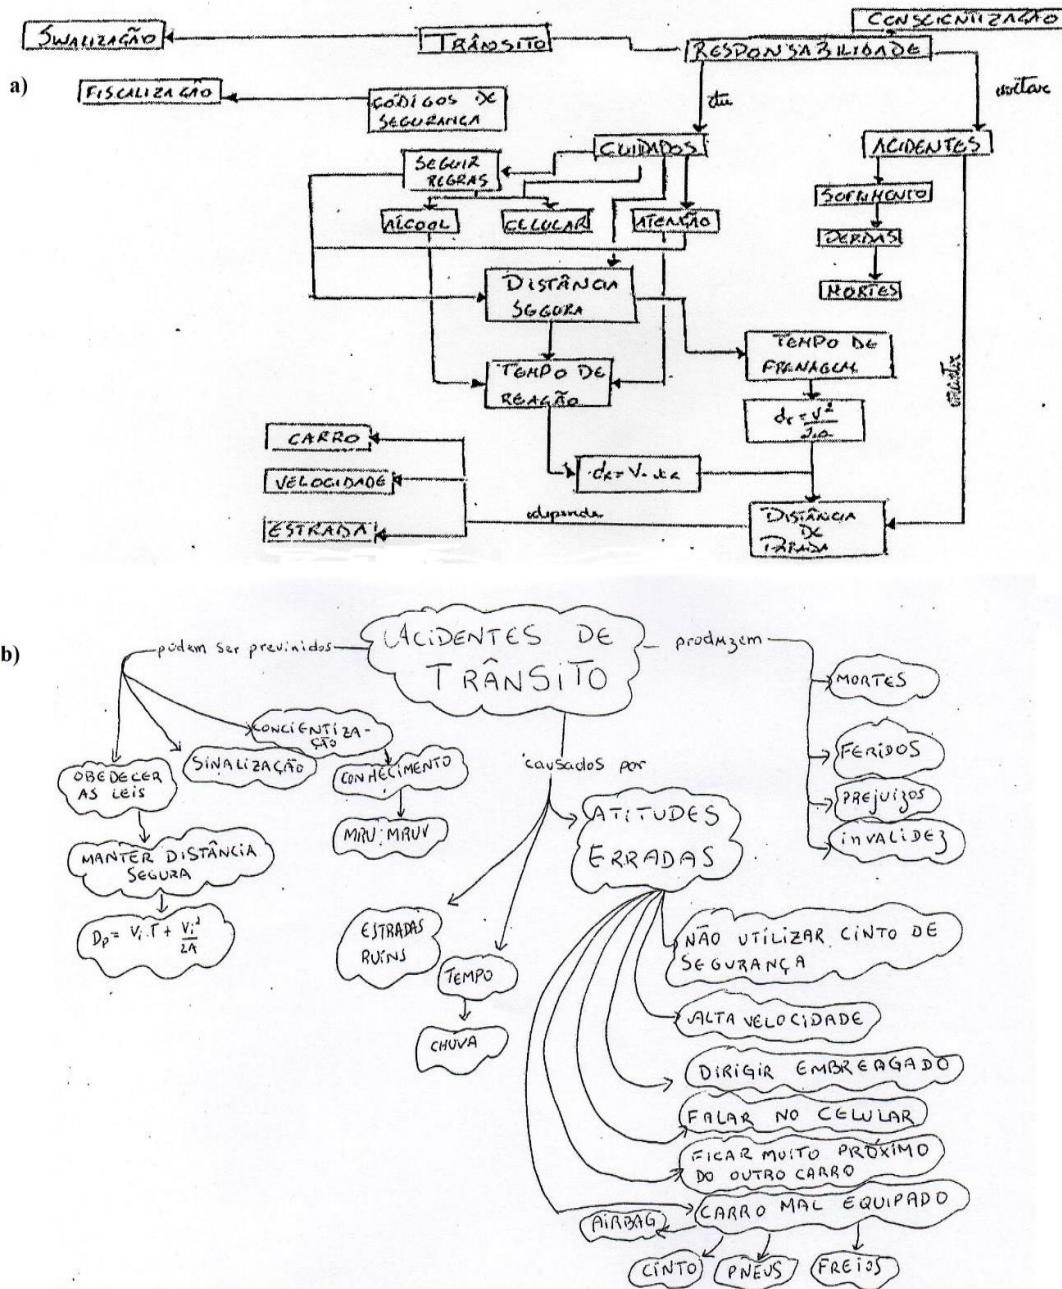 CONSCIENTIZAÇÃO
SINALIZAÇÃO
TRÂNSITO
RESPONSABILIDADE
a)
FISCALIZAÇÃO
CÓDIGOS DE
SEGURANÇA
ACIDENTES
CUIDADOS
SEGUIR
REGRAS
ÁLCOOL
CELULAR
ATENÇÃO
SOFRIMENTO
PERDAS
MORTES
DISTÂNCIA
SEGURA
TEMPO DE
FRENAGEM
TEMPO DE
REAÇÃO
CARRO
VELOCIDADE
ESTRADA
depende
DISTÂNCIA
DE
PARADA
b)
ACIDENTES DE
TRÂNSITO
podem ser previnidos
produzem
MORTES
FERIDOS
PREJUIZOS
INVALIDEZ
CONCIENTIZA-
ÇÃO
SINALIZAÇÃO
OBEDECER
AS LEIS
CONHECIMENTO
MRU; MRUV
MANTER DISTÂNCIA
SEGURA
Dp = Vi.T + Vi²/2A
causados por
ATITUDES
ERRADAS
ESTRADAS
RUINS
TEMPO
CHUVA
NÃO UTILIZAR CINTO DE
SEGURANÇA
ALTA VELOCIDADE
DIRIGIR EMBREAGADO
FALAR NO CELULAR
FICAR MUITO PRÓXIMO
DO OUTRO CARRO
CARRO MAL EQUIPADO
AIRBAG
CINTO
PNEUS
FREIOS